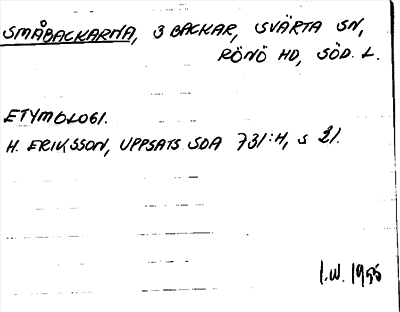 SMÅBACKARNA, 3 BACKAR, SVÄRTA SN,
RÖNÖ HD, SÖD. L.
ETYMOLOGI.
H. ERIKSSON, UPPSATS SDA 731:H, S 21.
I.W. 1955